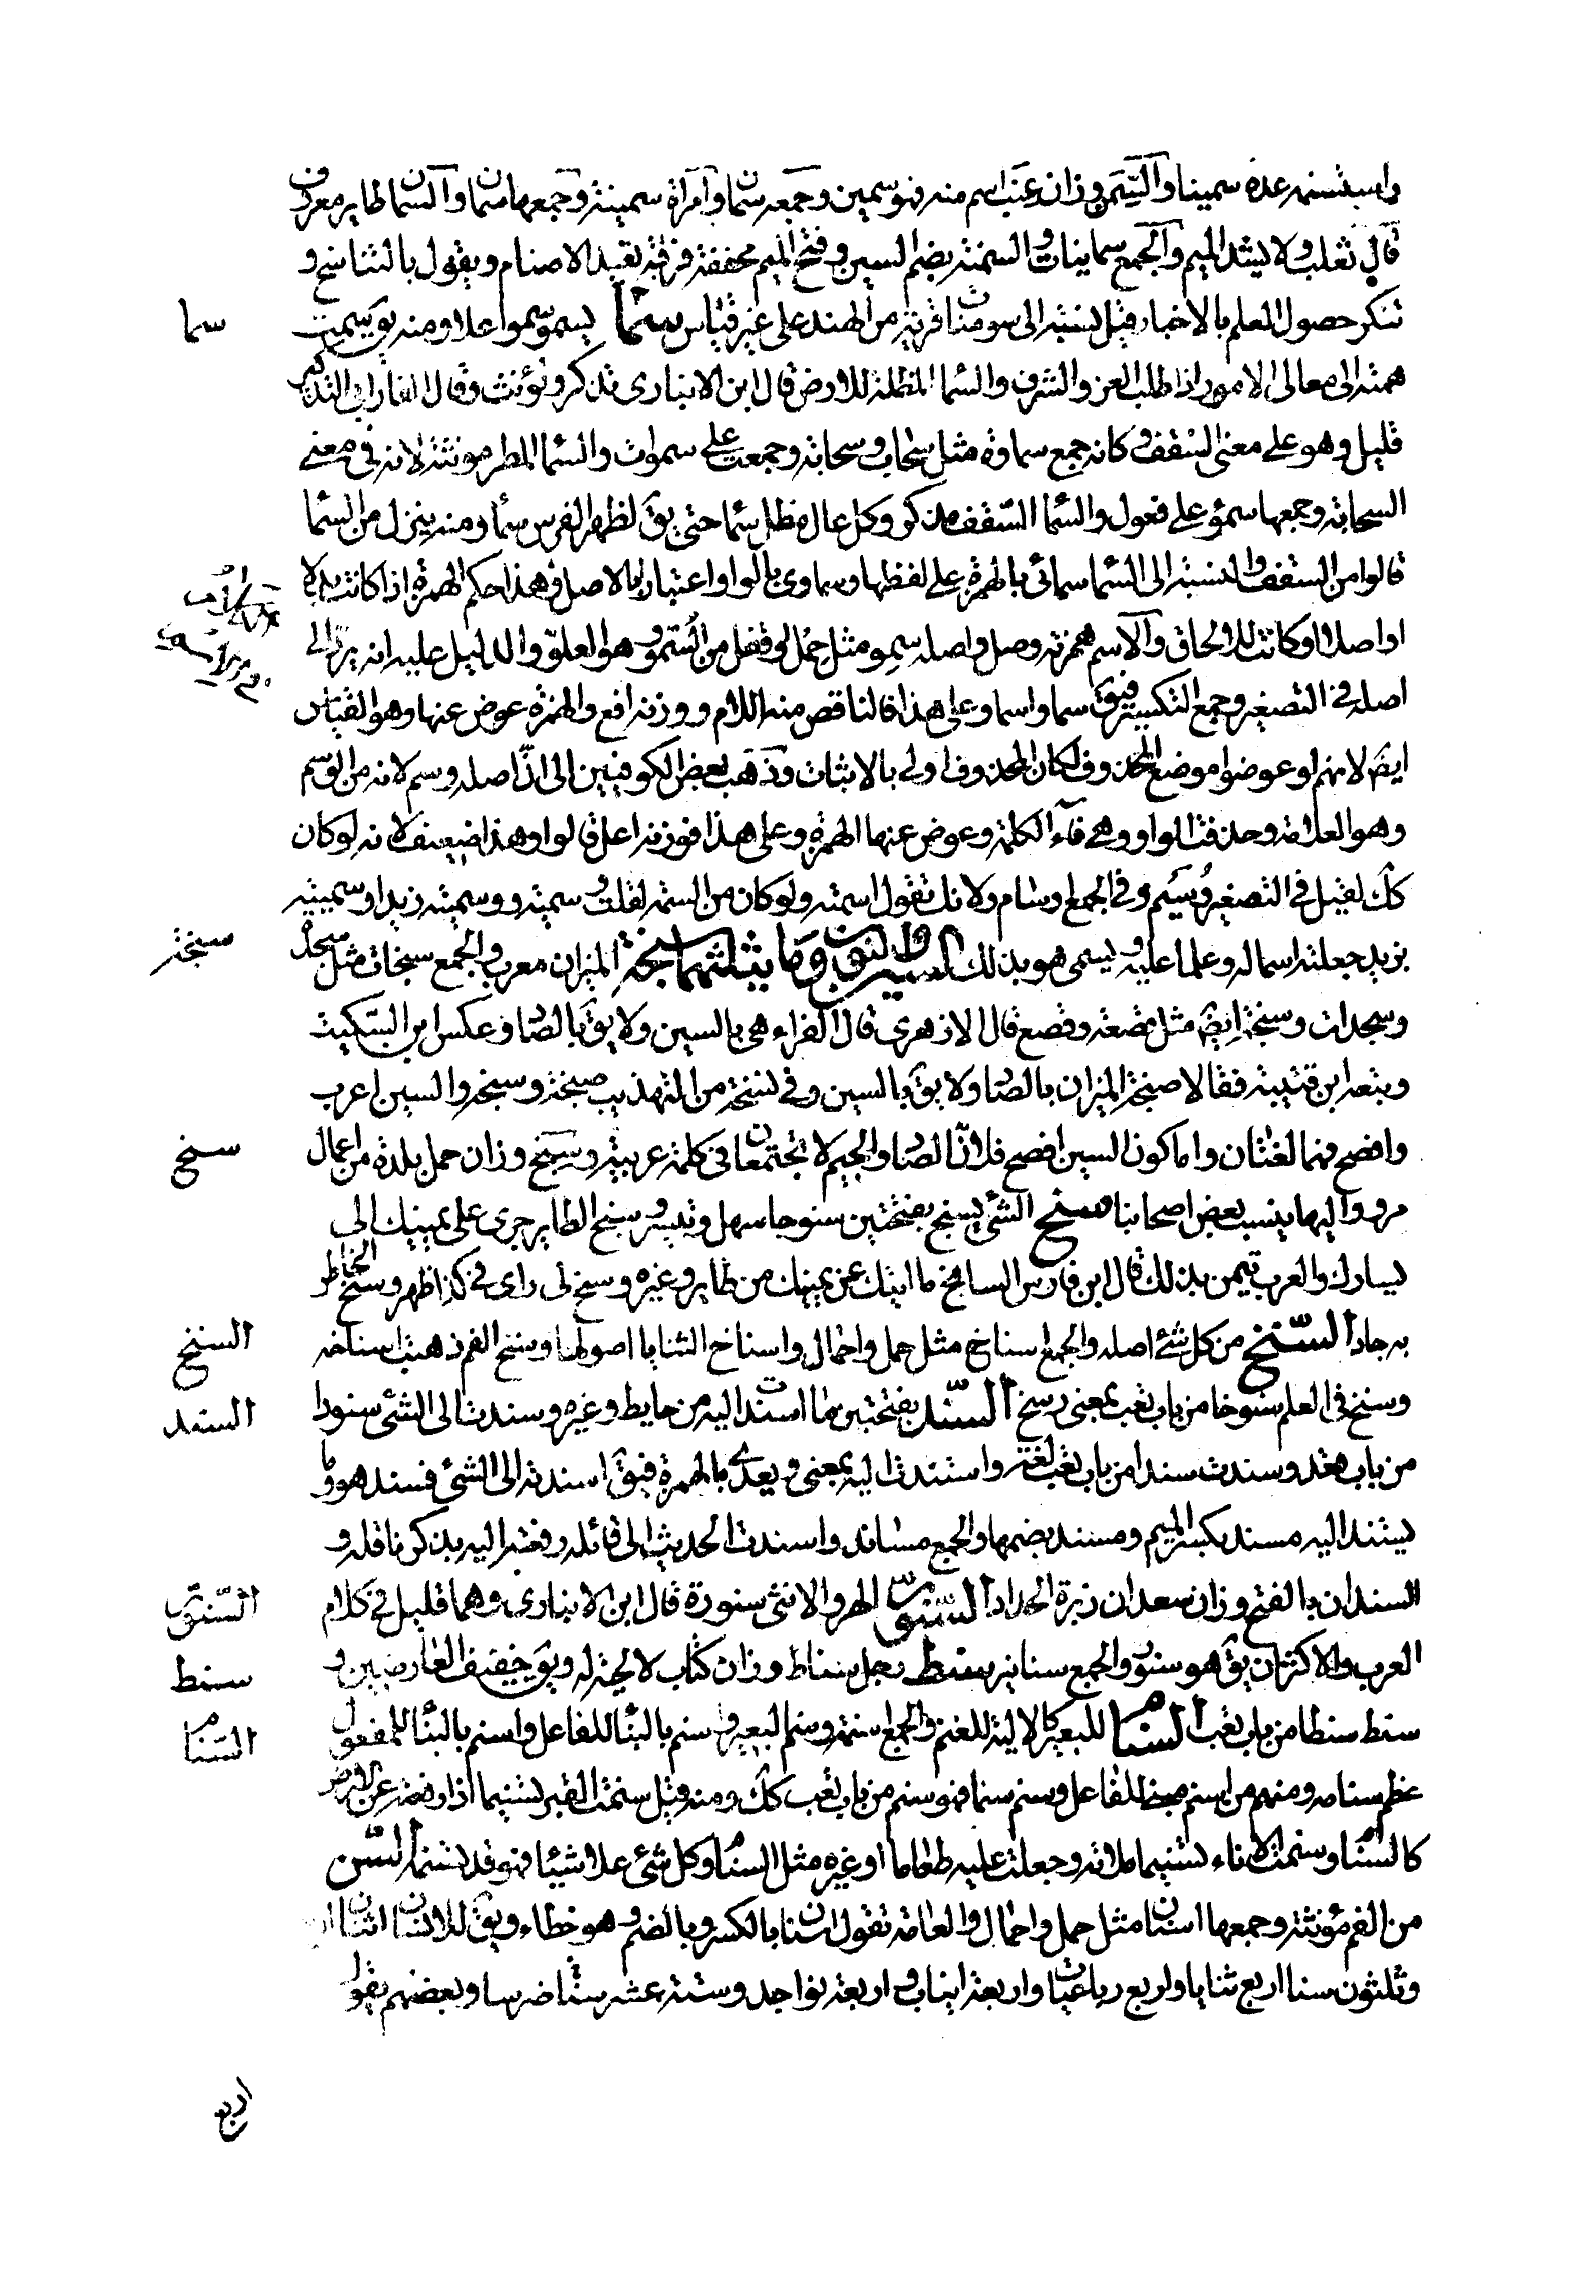 واستسمنه عده سمينا والسمن وزان عنب اسم منه فهو سمين وجمعه سمان وامراة سمينة وجمعها سمان والسمان طاير معروف
قال ثعلب ولا يشدد الميم والجمع سمانيات والسمنية بضم السين وفتح الميم مخففة فرقة تعبد الاصنام ويقول بالتناسخ و
تنكر حصول العلم بالاخبار قيل نسبة الى سومنات قرية من الهند على غير قياس سما يسمو سموا علا ومنه يق سمت
سما
همته الى معالى الامور اذا طلب العز والشرف والسما المظلة للارض قال ابن الانبارى تذكر وتؤنث وقال الفارابى التذكير
قليل وهو على معنى السقف وكانه جمع سماوة مثل سحاب وسحابة وجمعت على سموات والسما المطر مونثة لانه فى معنى
السحابة وجمعها سمو على فعول والسما السقف مذكر وكل عال مظل سما حتى يق لظهر الفرس سما ومنه ينزل من السما
قالوا من السقف والنسبة الى السما سمائى بالهمزة على لفظها وسماوى بالواو اعتبارا بالاصل وهذا حكم الهمزة اذا كانت بدلا
او اصلا او كانت للالحاق والاسم همزته وصل واصله سمو مثل حمل او قفل من السمو وهو العلو والدليل عليه انه يرد الى
اصله فى التصغير وجمع التكسير فيق سمى واسما وعلى هذا فالناقص منه اللام ووزنه افع والهمزة عوض عنها وهو القياس
ايضا لانهم لو عوضوا موضع المحذوف لكان المحذوف اولى بالاثبات وذهب بعض الكوفيين الى ان اصله وسم لانه من الوسم
وهو العلامة وحذفت الواو وهى فاء الكلمة وعوض عنها الهمزة وعلى هذا فوزنه اعل قالوا وهذا ضعيف لانه لو كان
كك لقيل فى التصغير وسيم وفى الجمع اوسام ولانك تقول اسميته ولو كان من السمة لقلت وسمته وسميته زيدا وسميته
بزيد جعلته اسما له وعلما عليه وتسمى هو بذلك السين والنون وما يثلثهما سنجة الميزان معرب والجمع سنجات مثل سجدة
سنجة
وسجدات وسنج ايضا مثل قصعة وقصع قال الازهرى قال الفراء هى بالسين ولا يق بالصاد وعكس ابن السكيت
وتبعه ابن قتيبة فقالا صنجة الميزان بالصاد ولا يق بالسين وفى نسخة من التهذيب صنجة وسنجة والسين اعرب
وافصح فهما لغتان واما كون السين افصح فلان الصاد والجيم لا تجتمعان فى كلمة عربية وسنج وزان حمل بلدة من اعمال
مرو واليها ينسب بعض اصحابنا سنح الشئ يسنح بفتحتين سنوحا سهل وتيسر وسنح الطاير جرى على يمينك الى
سنح
يسارك والعرب تتيمن بذلك قال ابن فارس السانح ما اتيك عن يمينك من طاير وغيره وسنح لى راى فى كذا ظهر وسنح الخاطر
به جاد السنخ من كل شئ اصله والجمع اسناخ مثل حمل واحمال واسناخ الثنايا اصولها وسنخ الفم ذهبت اسناخه
السنخ
وسنخ فى العلم سنوخا من باب تعب بمعنى رسخ السند بفتحتين ما استندت اليه من حايط وغيره وسندت الى الشئ سنودا
السند
من باب قعد وسندت سندا من باب تعب لغة واستندت اليه بمعنى ويعدى بالهمزة فيق اسندته الى الشئ فسند هو وما
يستند اليه مسند بكسر الميم ومسند بضمها والجمع مساند واسندت الحديث الى قائله رفعته اليه بذكر ناقله و
السندان بالفتح وزان سعدان زبرة الحداد السنور الهر والانثى سنورة قال ابن الانبارى وهما قليل فى كلام
السنور
العرب والاكثر ان يق هو سنور والجمع سنانير سنط رجل سناط وزان كتاب لا لحية له ويق خفيف العارضين و
سنط
سنط سنطا من باب تعب السنام للبعير كالالية للغنم والجمع اسنمة وسنم البعير واسنم بالبنا للفاعل واسنم بالبنا للمفعول
السنام
عظم سنامه ومنهم من اسنم مبنيا للفاعل وسنم سنما فهو سنم من باب تعب كك ومنه قيل سنمت القبر تسنيما اذا رفعته عن الارض
كالسنام وسنمت الاناء تسنيما ملاته وجعلت عليه طعاما او غيره مثل السنام وكل شئ علا شيئا فهو قد تسنمه السن
من الفم مؤنثة وجمعها اسنان مثل حمل واحمال والعامة تقول اسنان بالكسر وبالضم وهو خطاء ويق للانسان اثنان
وثلثون سنا اربع ثنايا واربع رباعيات واربعة انياب واربعة نواجد وستة عشر ضرسا وبعضهم يقول
اربع